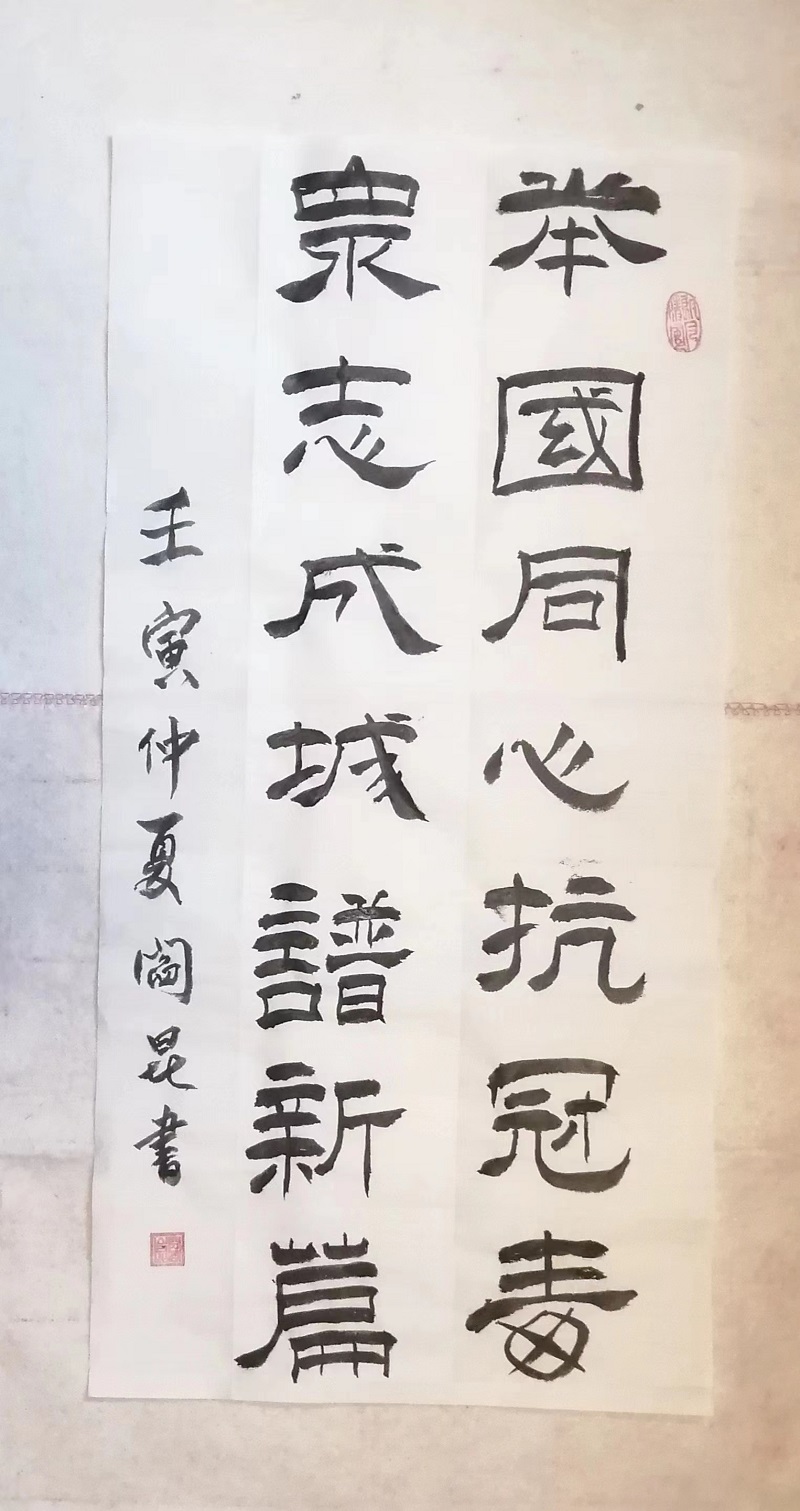 举國同心抗冠毒
眾志成城譜新篇
壬寅仲夏阎昆書